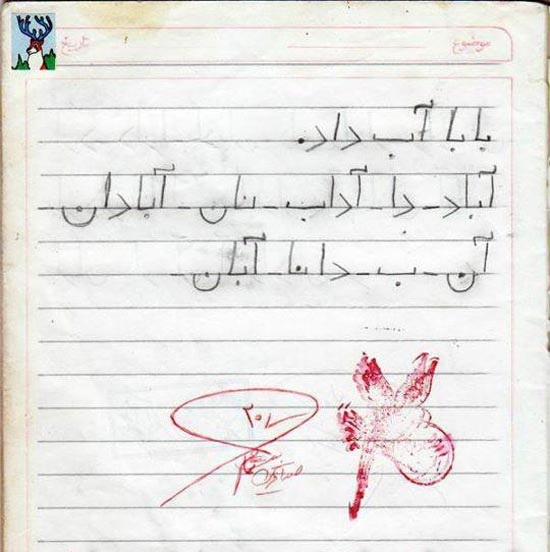 موضوع
تاریخ
بابا آب داد.
آباد - دا - آداب - نان - آبادان
آن - ب - دانا - آبان -
۲۰